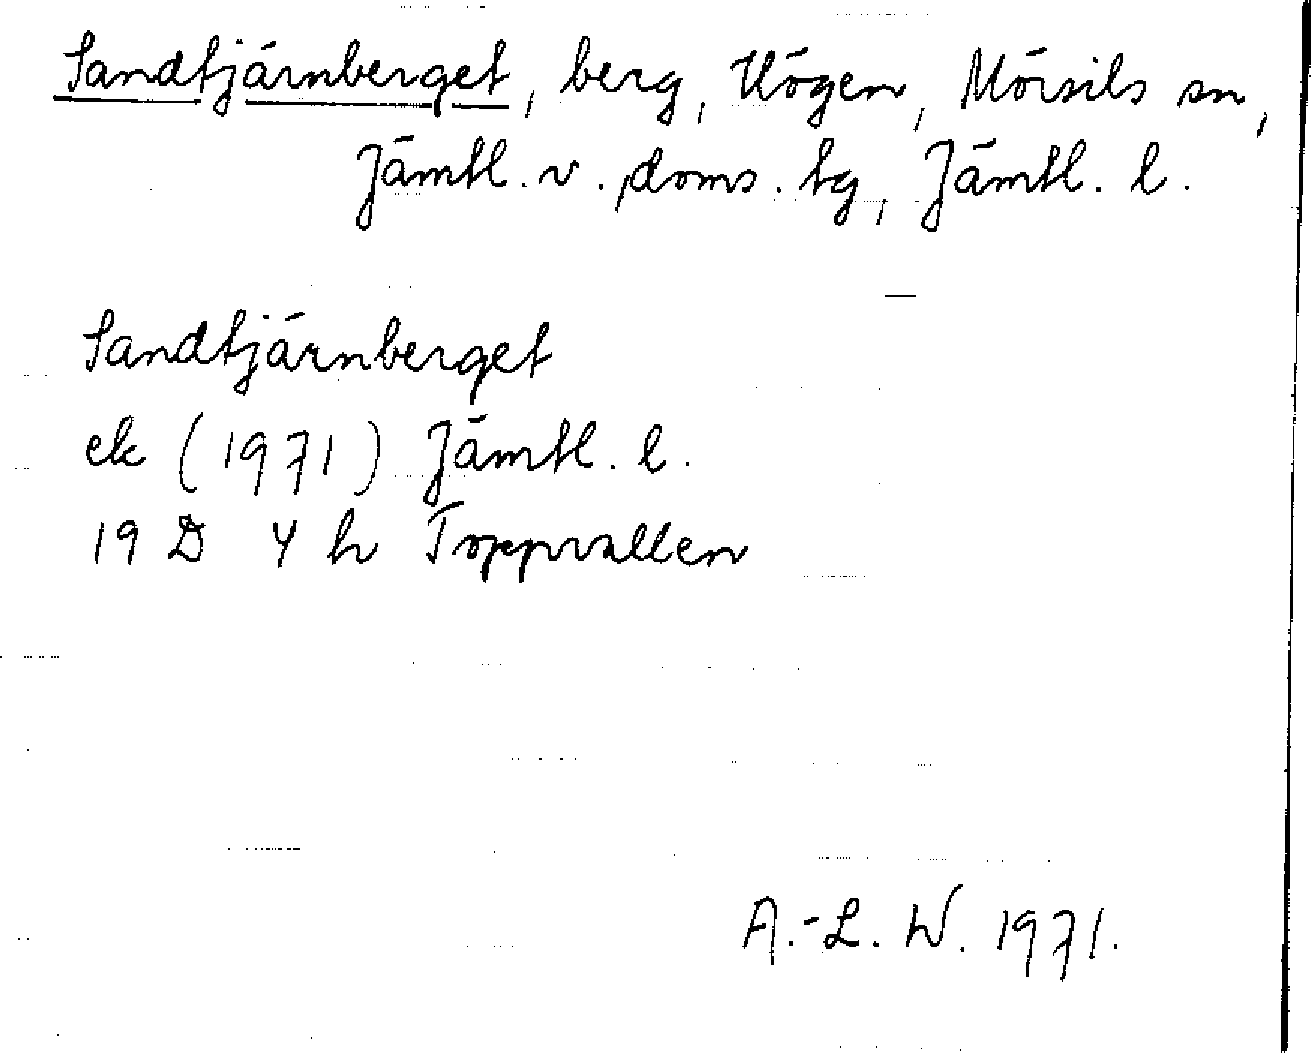 Sandtjärnberget, berg, Högen, Mörsils sn,
Jämtl. v. doms. tg, Jämtl. l.
Sandtjärnberget
ek (1971) Jämtl. l.
19 D 4 h Toppvallen
A.-L. W. 1971.